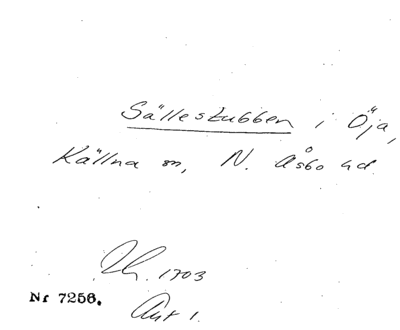 Sällestubben i Öja,
Källna sn, N. Åsbo hd.
Th. 1703
Nr 7256.
Akt 1.